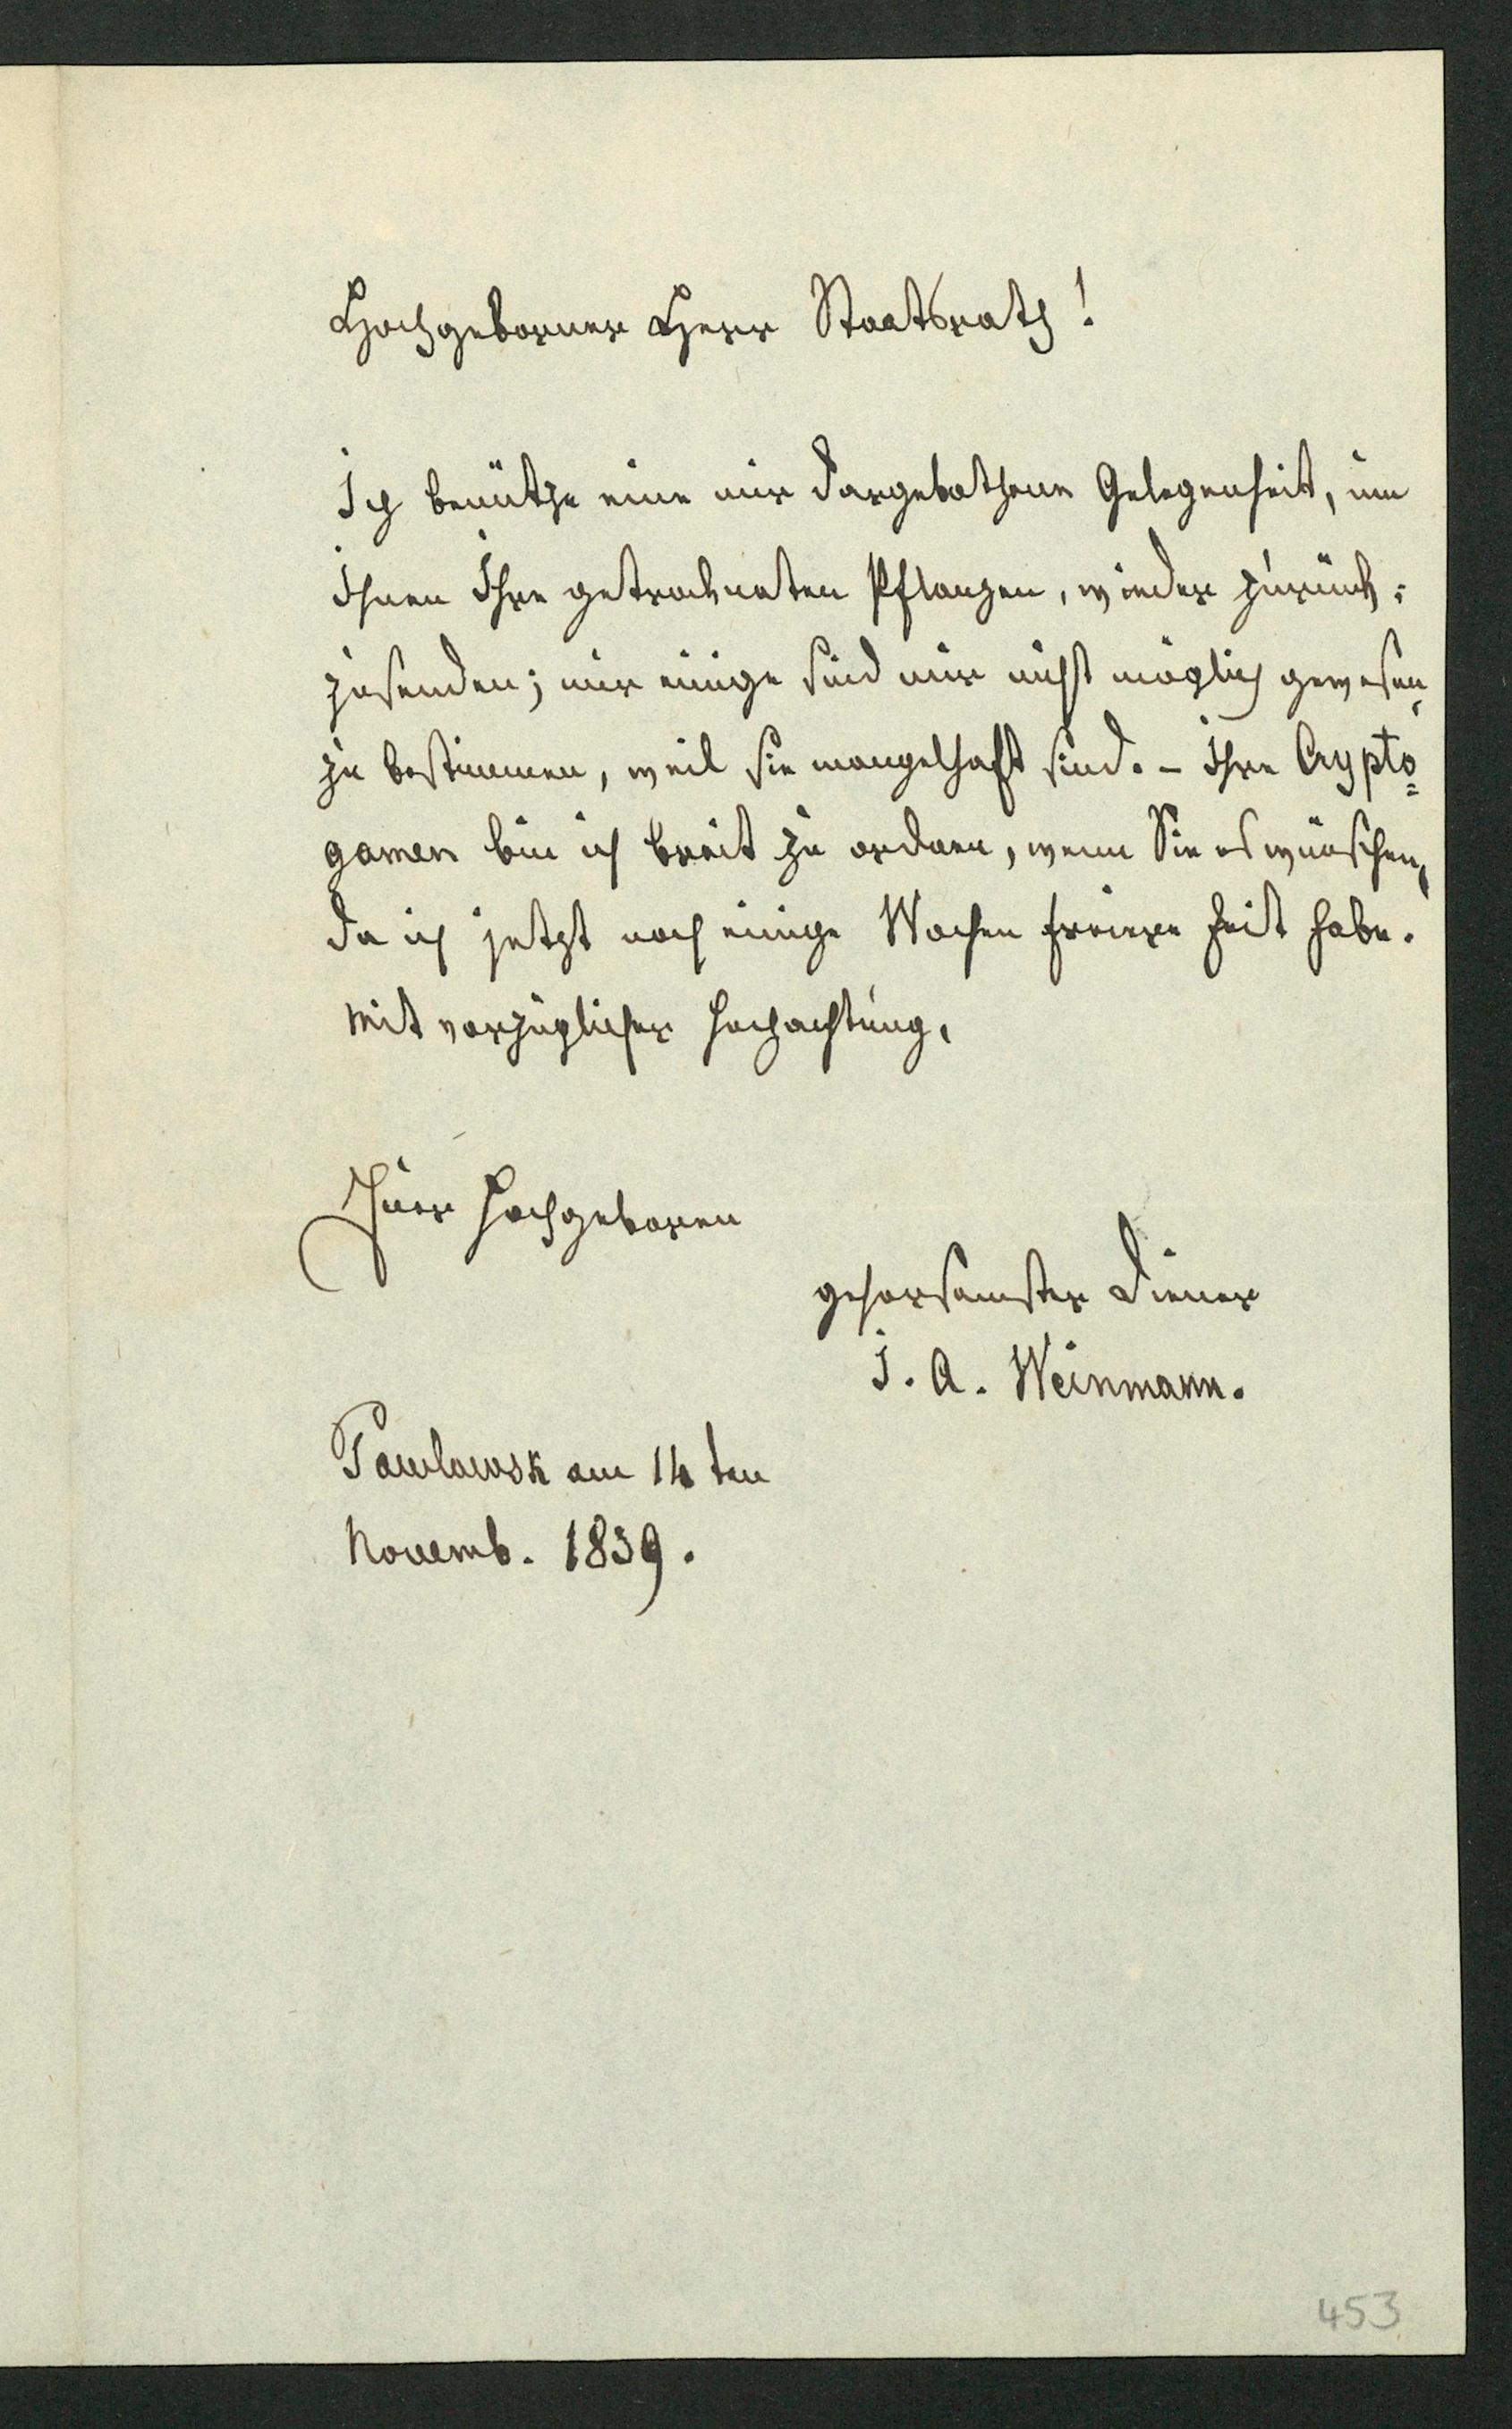 Hochgeborner Herr Staatsrath!
Ich benütze eine mir dargebothene Gelegenheit, um
Ihnen Ihre getrockneten Pflanzen, wieder zurück=
zusenden; nur einige sind mir nicht möglich gewesen,
zu bestimmen, weil sie mangelhaft sind. – Ihre Crypto=
gamen bin ich breit zu ordnen, wenn Sie es wünschen,
da ich jetzt noch einige Wochen freiere Zeit habe.
Mit vorzüglicher Hochachtung,
Euer Hochgeboren
gehorsamster Diener
J. A. Weinmann.
Pawlowsk am 14 ten
Novemb. 1839.
453